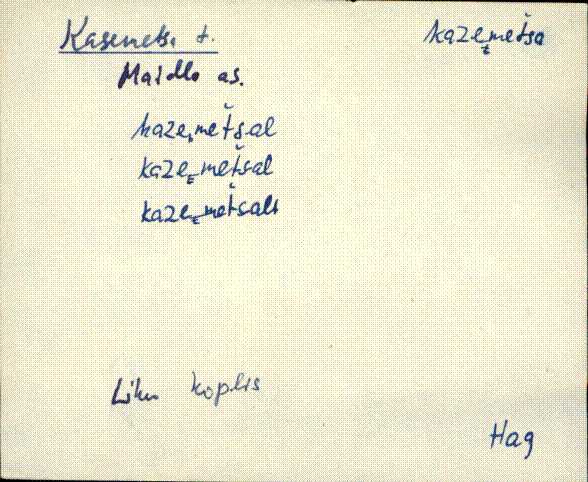 Kasemetsa t. kazeₜmeťsa
Maidla as.
kazeₜmeťsal
kazeₜmeťsal
kazeₜmeťsalt
Liku koplis
Hag